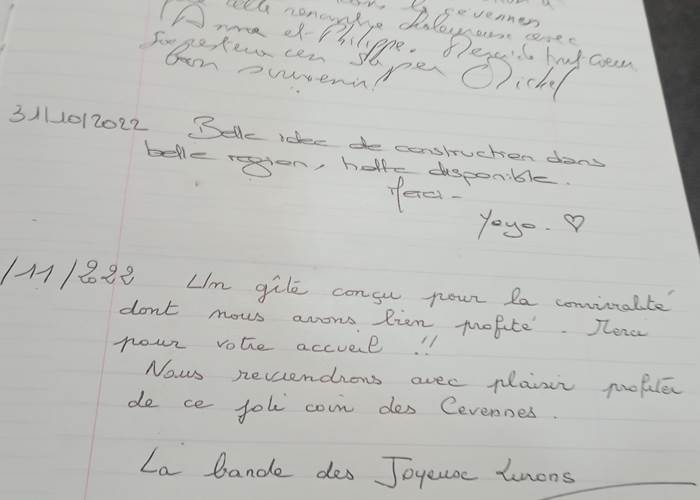 Cevennen
Celle rencontre chaleureuse avec
Anna et Philippe. Merci de tout cœur
bon souvenir! Michel
31/10/2022 Belle idee de construction dans
belle region, hotte disponible.
Merci -
Yoyo. ♡
/11/2022 Un gîte conçu pour la convivalité
dont nous avons bien profité. Merci
pour votre accueil !!
Nous reviendrons avec plaisir profiter
de ce joli coin des Cevennes.
La bande des Joyeux Lurons